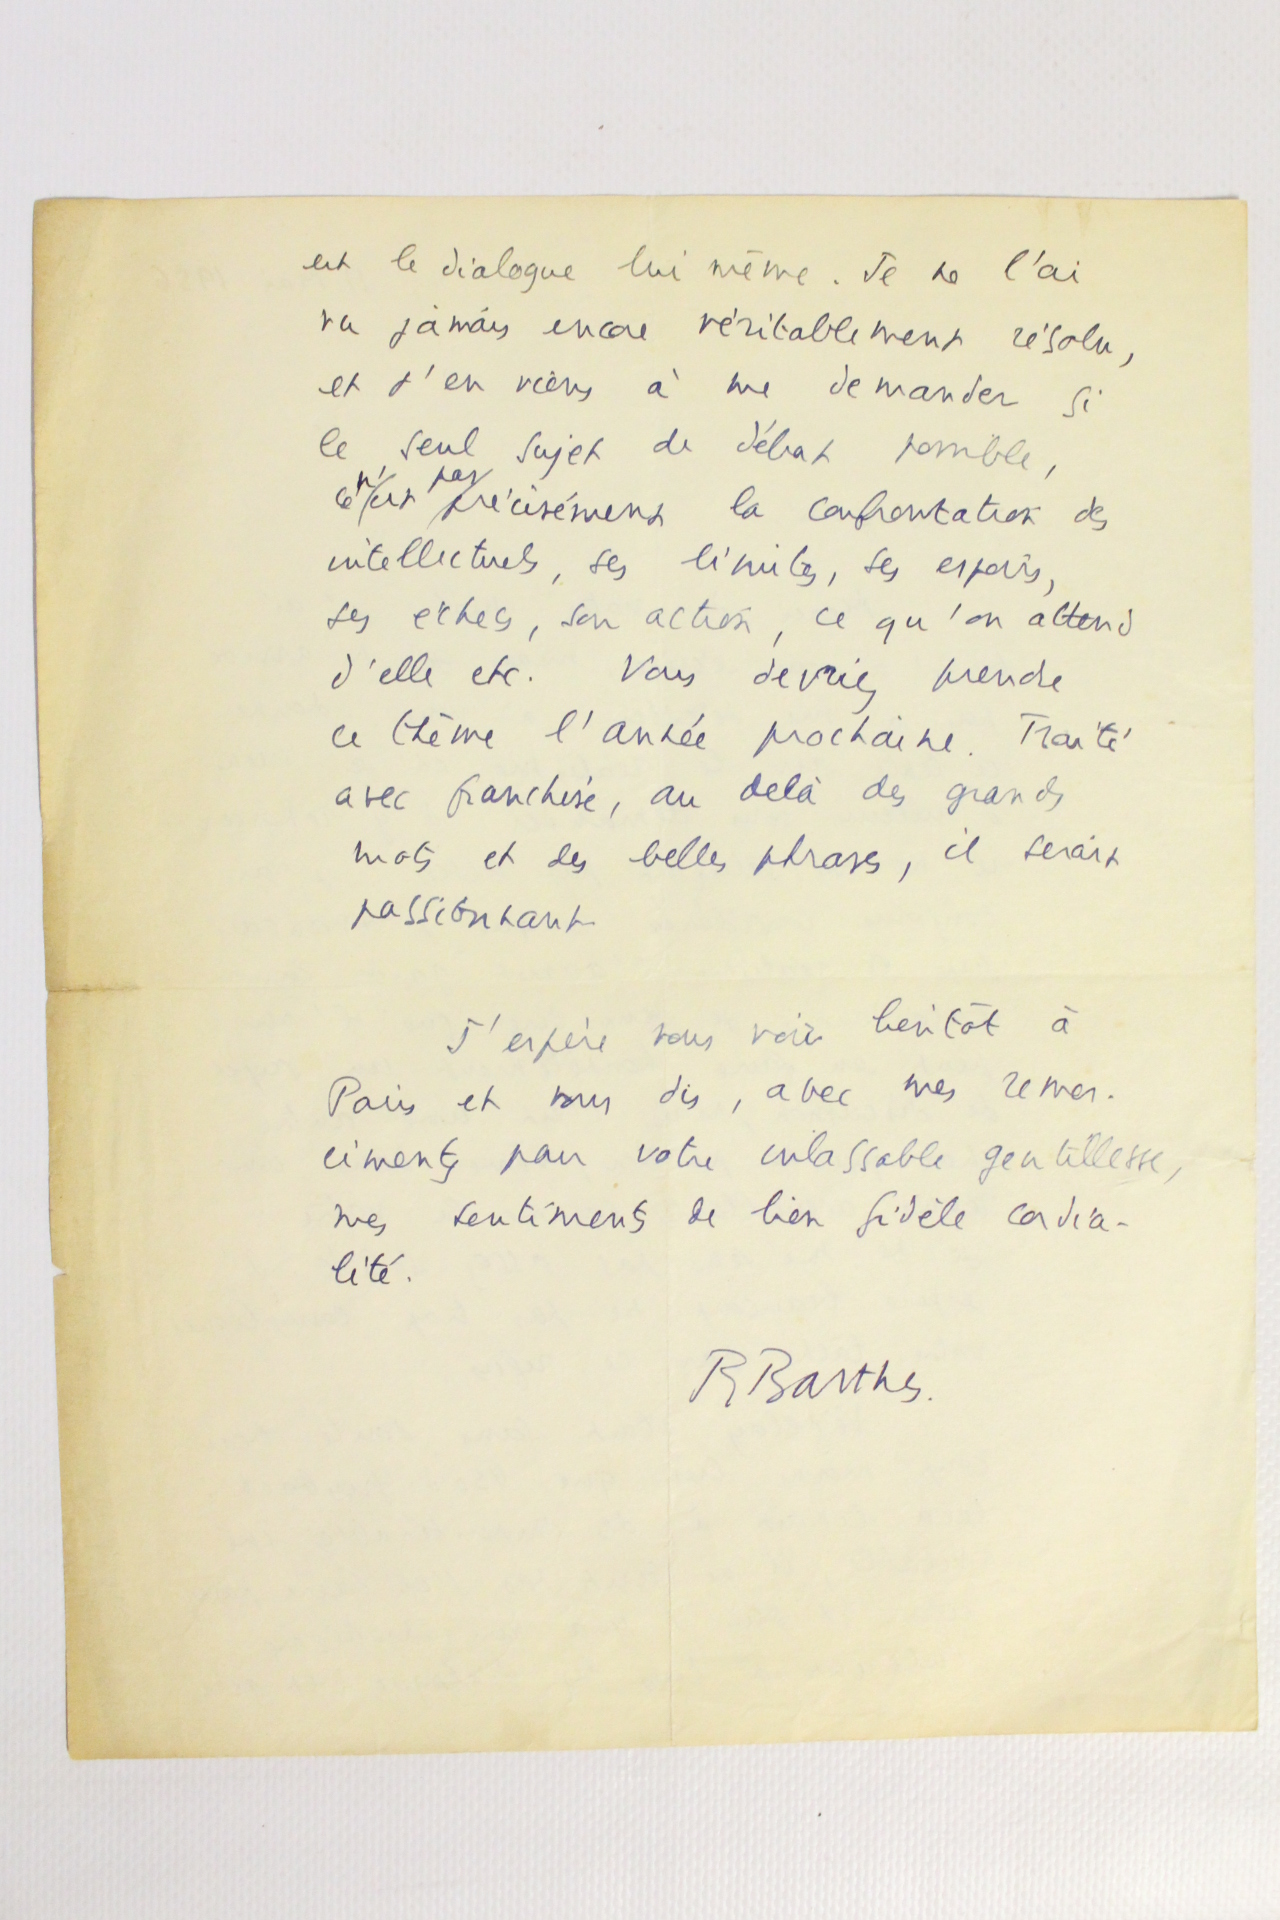 est le dialogue lui même. Je ne l'ai
vu jamais encore véritablement résolu,
et j'en viens à me demander si
le seul sujet de débat possible,
ce n'est pas précisément la confrontation des
intellectuels, ses limites, ses espoirs,
ses échecs, son action, ce qu'on attend
d'elle etc. Vous devriez prendre
ce thème l'année prochaine. Traité
avec franchise, au delà des grands
mots et des belles phrases, il serait
passionnant
J'espère vous voir bientôt à
Paris et vous dis, avec mes remer-
ciments pour votre inlassable gentillesse,
mes sentiments de bien fidèle cordia-
lité.
R Barthes.